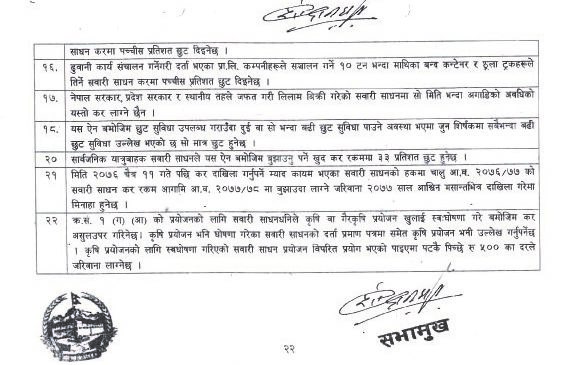 साधन करमा पच्चीस प्रतिशत छुट दिइनेछ ।
१६. ढुवानी कार्य संचालन गर्नेगरी दर्ता भएका प्रा.लि. कम्पनीहरूले सञ्चालन गर्ने १० टन भन्दा माथिका बन्द कन्टेनर र ठुला ट्रकहरूले
तिर्ने सवारी साधन करमा पच्चीस प्रतिशत छुट दिइनेछ ।
१७. नेपाल सरकार, प्रदेश सरकार र स्थानीय तहले जफत गरी लिलाम बिक्री गरेको सवारी साधनमा सो मिति भन्दा अगाडिको अवधिको
यस्तो कर लाग्ने छैन ।
१८. यस ऐन बमोजिम छुट सुविधा उपलब्ध गराउँदा दुई वा सो भन्दा बढी छुट सुविधा पाउने अवस्था भएमा जुन शिर्षकमा सबैभन्दा बढी
छुट सुविधा उल्लेख भएको छ सो मात्र छुट हुनेछ ।
२० सार्वजनिक यात्रुबाहक सवारी साधनले यस ऐन बमोजिम बुझाउनु पर्ने खुद कर रकममा ३३ प्रतिशत छुट हुनेछ ।
२१ मिति २०७६ चैत्र ११ गते पछि कर दाखिला गर्नुपर्ने म्याद कायम भएका सवारी साधनको हकमा चालु आ.व. २०७६/७७ को
सवारी साधन कर रकम आगामि आ.व. २०७७/७८ मा बुझाउदा लाग्ने जरिवाना २०७७ साल आश्विन मसान्तभित्र दाखिला गरेमा
मिनाहा हुनेछ ।
२२ क्र.सं. १ (ग) (आ) को प्रयोजनको लागि सवारी साधनधनिले कृषि वा गैरकृषि प्रयोजन खुलाई स्वःघोषणा गरे बमोजिम कर
असुलउपर गरिनेछ । कृषि प्रयोजन भनि घोषणा गरेका सवारी साधनको दर्ता प्रमाण पत्रमा समेत कृषि प्रयोजन भनी उल्लेख गर्नुपर्नेछ
। कृषि प्रयोजनको लागि स्वःघोषणा गरिएको सवारी साधन प्रयोजन विपरित प्रयोग भएको पाइएमा पटकै पिच्छे रु ५०० का दरले
जरिवाना लाग्नेछ ।
सभामुख
२२